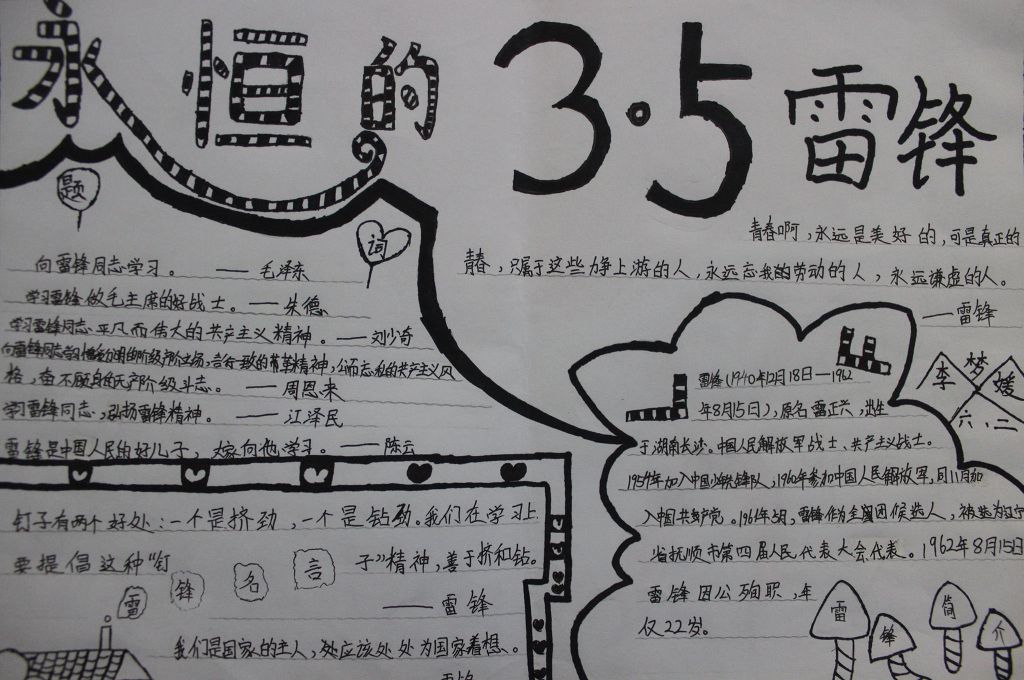 永恒的
3·5雷锋
青春啊，永远是美好的，可是真正的
青春，只属于这些力争上游的人，永远忘我的劳动的人，永远谦虚的人。
——雷锋
题
词
向雷锋同志学习。——毛泽东
学习雷锋做毛主席的好战士。——朱德
学习雷锋同志平凡而伟大的共产主义精神。——刘少奇
向雷锋同志学习憎爱分明的阶级立场，言行一致的革命精神，公而忘私的共产主义风
格，奋不顾身的无产阶级斗志。——周恩来
学习雷锋同志，弘扬雷锋精神。——江泽民
雷锋是中国人民的好儿子，大家向他学习。——陈云
钉子有两个好处：一个是挤劲，一个是钻劲。我们在学习上
要提倡这种“钉
子”精神，善于挤和钻。
——雷锋
雷锋名言
我们是国家的主人，处应该处处为国家着想。
雷锋
李梦媛
六、二
雷锋（1940年12月18日—1962
年8月15日），原名雷正兴，出生
于湖南长沙。中国人民解放军战士，共产主义战士。
入中国共产党。1961年5月，雷锋作为候选人，被选为辽宁
省抚顺市第四届人民代表大会代表。1962年8月15日
雷锋因公殉职，年
仅22岁。
雷锋简介